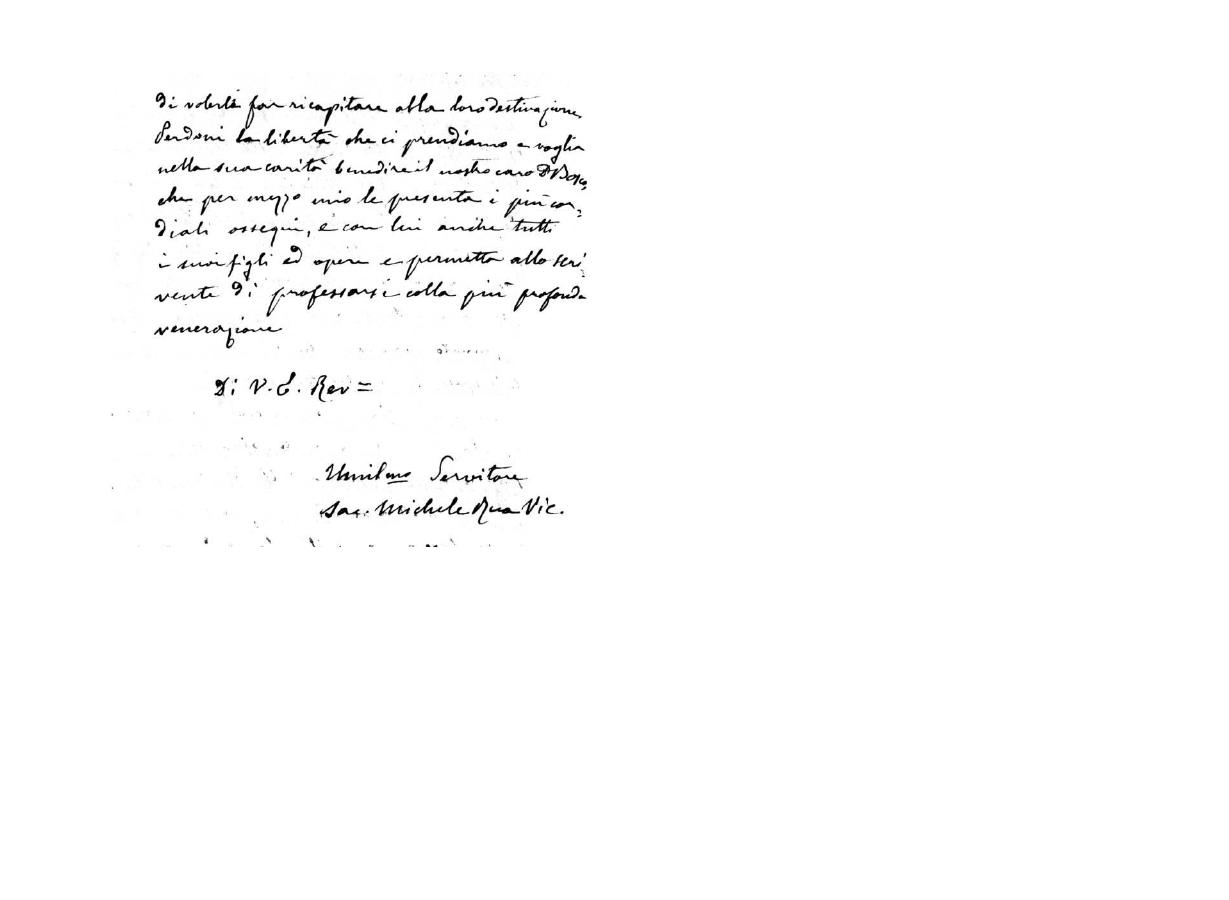 di volerle far ricapitare alla loro destinazione.
Perdoni la libertà che ci prendiamo e voglia
nella sua carità benedire il nostro caro D Bosco,
che per mezzo mio le presenta i più cor-
diali ossequi, e con lui anche tutti
i suoi figli ed opere e permetta allo scri
vente di professarsi colla più profonda
venerazione
Di V. E. Rev=
Umilmo Servitore
Sac. Michele Rua Vic.